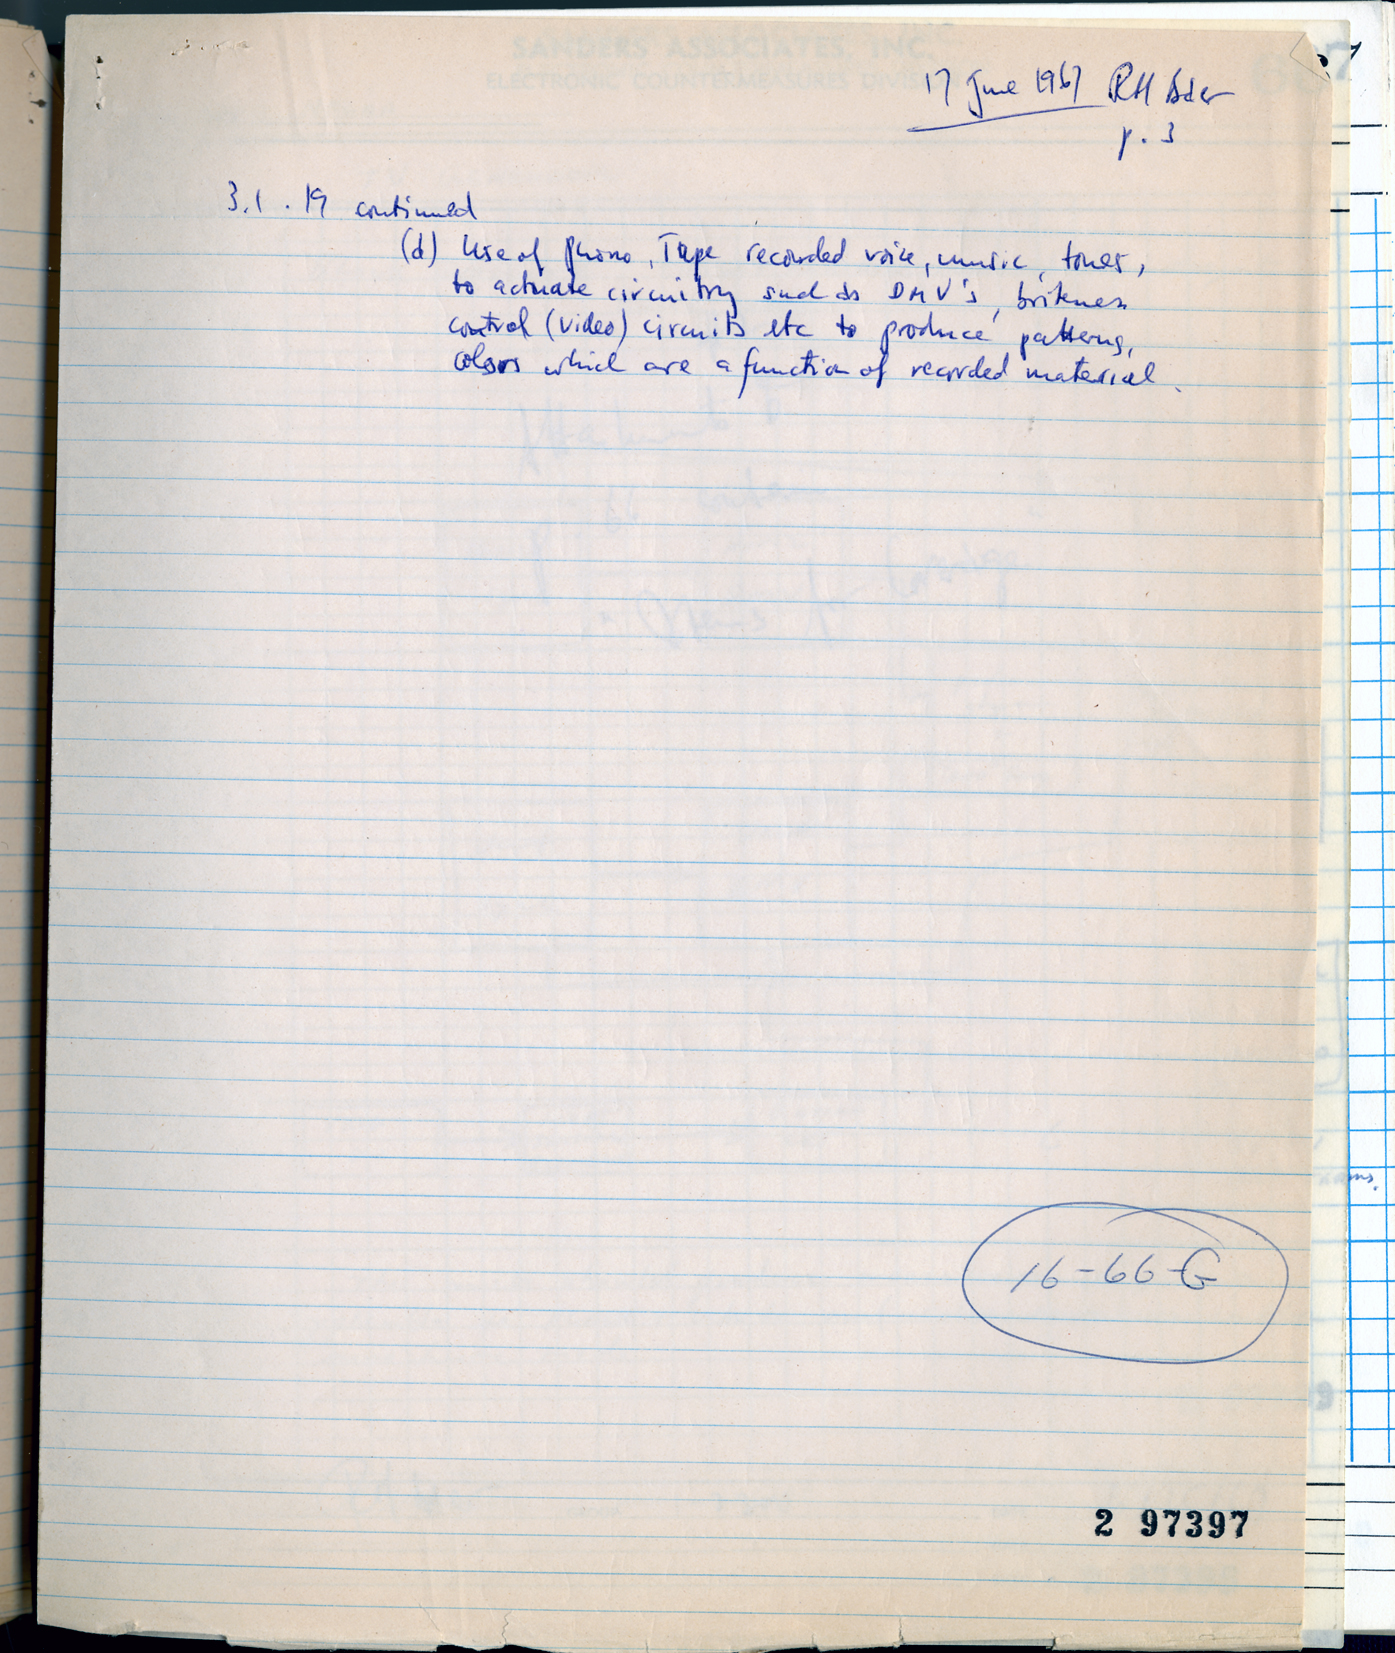 SANDERS ASSOCIATES, INC.
ELECTRONIC COUNTERMEASURES DIVISION
17 June 1967 RH Baer
p. 3
3.1.19 continued
(d) Use of phono, Tape recorded voice, music, tones,
to actuate circuitry such as DMV's, britenes
control (video) circuits etc to produce patterns,
colors which are a function of recorded material.
16-66-G
2 97397